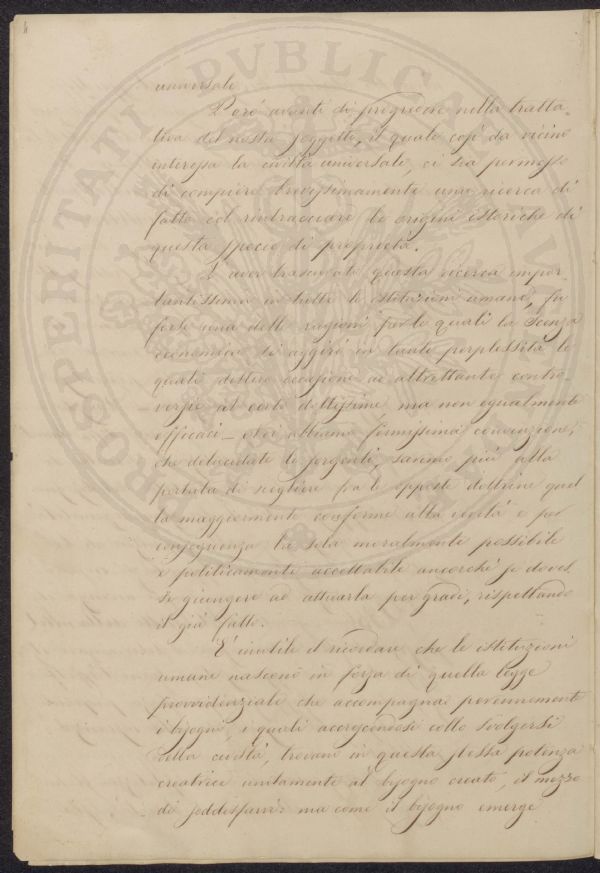 universale
Però avanti di progredire nella tratta-
tiva del nostro soggetto, il quale così da vicino
interessa la civiltà universale, ci sia permesso
di compiere brevissimamente una ricerca di
fatto col rintracciare le origini istoriche di
questa specie di proprietà.
L'aver trascurato questa ricerca impor-
tantissima in tutte le istituzioni umane, fu
forse una delle ragioni per le quali la Scienza
economica si aggirò in tante perplessità le
quali diedero occasione ad altrettante contro-
versie al certo dottissime, ma non egualmente
efficaci – Noi abbiamo fermissima convinzione,
che delucidate le sorgenti, saremo più alla
portata di scegliere fra le opposte dottrine quel
la maggiormente conforme alla verità e per
conseguenza la sola moralmente possibile
e politicamente accettabile ancorchè si doves
se giungere ad attuarla per gradi, rispettando
il già fatto.
E' inutile il ricordare che le istituzioni
umane nascono in forza di quella legge
provvidenziale che accompagna perennemente
i bisogni, i quali accrescendosi collo svolgersi
della civiltà, trovano in questa stessa potenza
creatrice unitamente al bisogno creato, il mezzo
di soddisfarvi: ma come il bisogno emerge
PROSPERITATI PVBLICAE